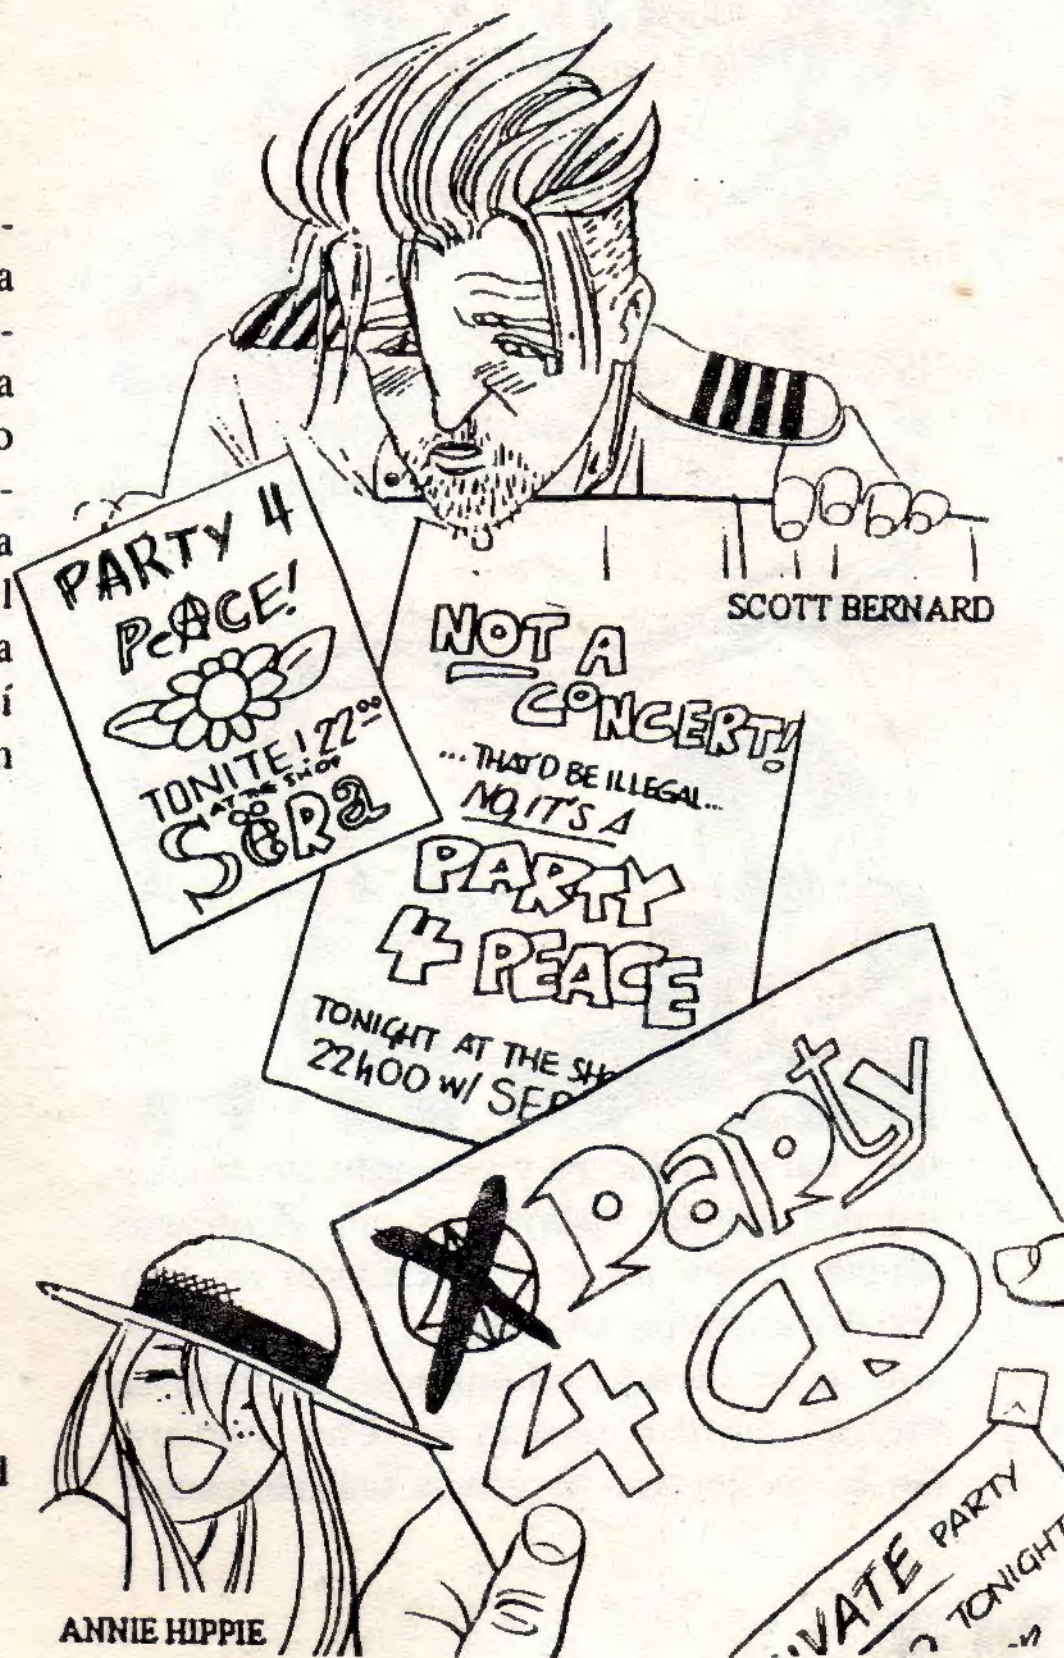 -
a
-
a
o
-
a
l
a
í
n
PARTY 4
PeACE!
TONITE! 22⁰⁰
AT THE SHOP
SëRa
SCOTT BERNARD
NOT A
CONCERT!
...THAT'D BE ILLEGAL...
NO, IT'S A
PARTY
4 PEACE
TONIGHT AT THE SH
22h00 w/ SER
Party
4
ANNIE HIPPIE
IVATE PARTY
TONIGHT